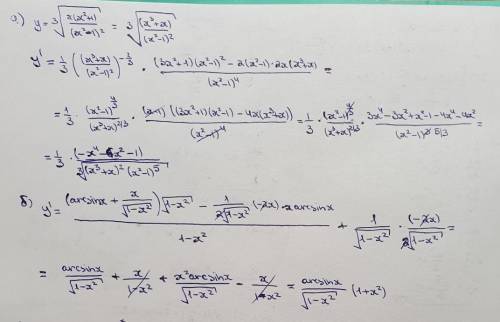 а) y = ∛(x(x²+1)/(x²-1)²) = ∛((x³+x)/(x²-1)²)
y' = 1/3 ((x³+x)/(x²-1)²)^(-2/3) · ((3x²+1)(x²-1)² - 2(x²-1)·2x(x³+x))/(x²-1)⁴ =
= 1/3 · (x²-1)^(4/3)/(x³+x)^(2/3) · ((3x²+1)(x²-1) - 4x(x³+x))/(x²-1) = 1/3 · (x²-1)/(x³+x)^(2/3) · (3x⁴-3x²+x²-1-4x⁴-4x²)/(x²-1)^(5/3) =
= 1/3 · (-x⁴-6x²-1)/∛((x³+x)²(x²-1)⁵)
б) y' = ((arcsinx + x/√(1-x²))√(1-x²) - 1/(2√(1-x²)) (-2x)·x arcsinx)/(1-x²) + 1/√(1-x²) · (-2x)/(2√(1-x²)) =
= arcsinx/√(1-x²) + x/(1-x²) + x²arcsinx/√(1-x²) - x/(1-x²) = arcsinx/√(1-x²) (1+x²)